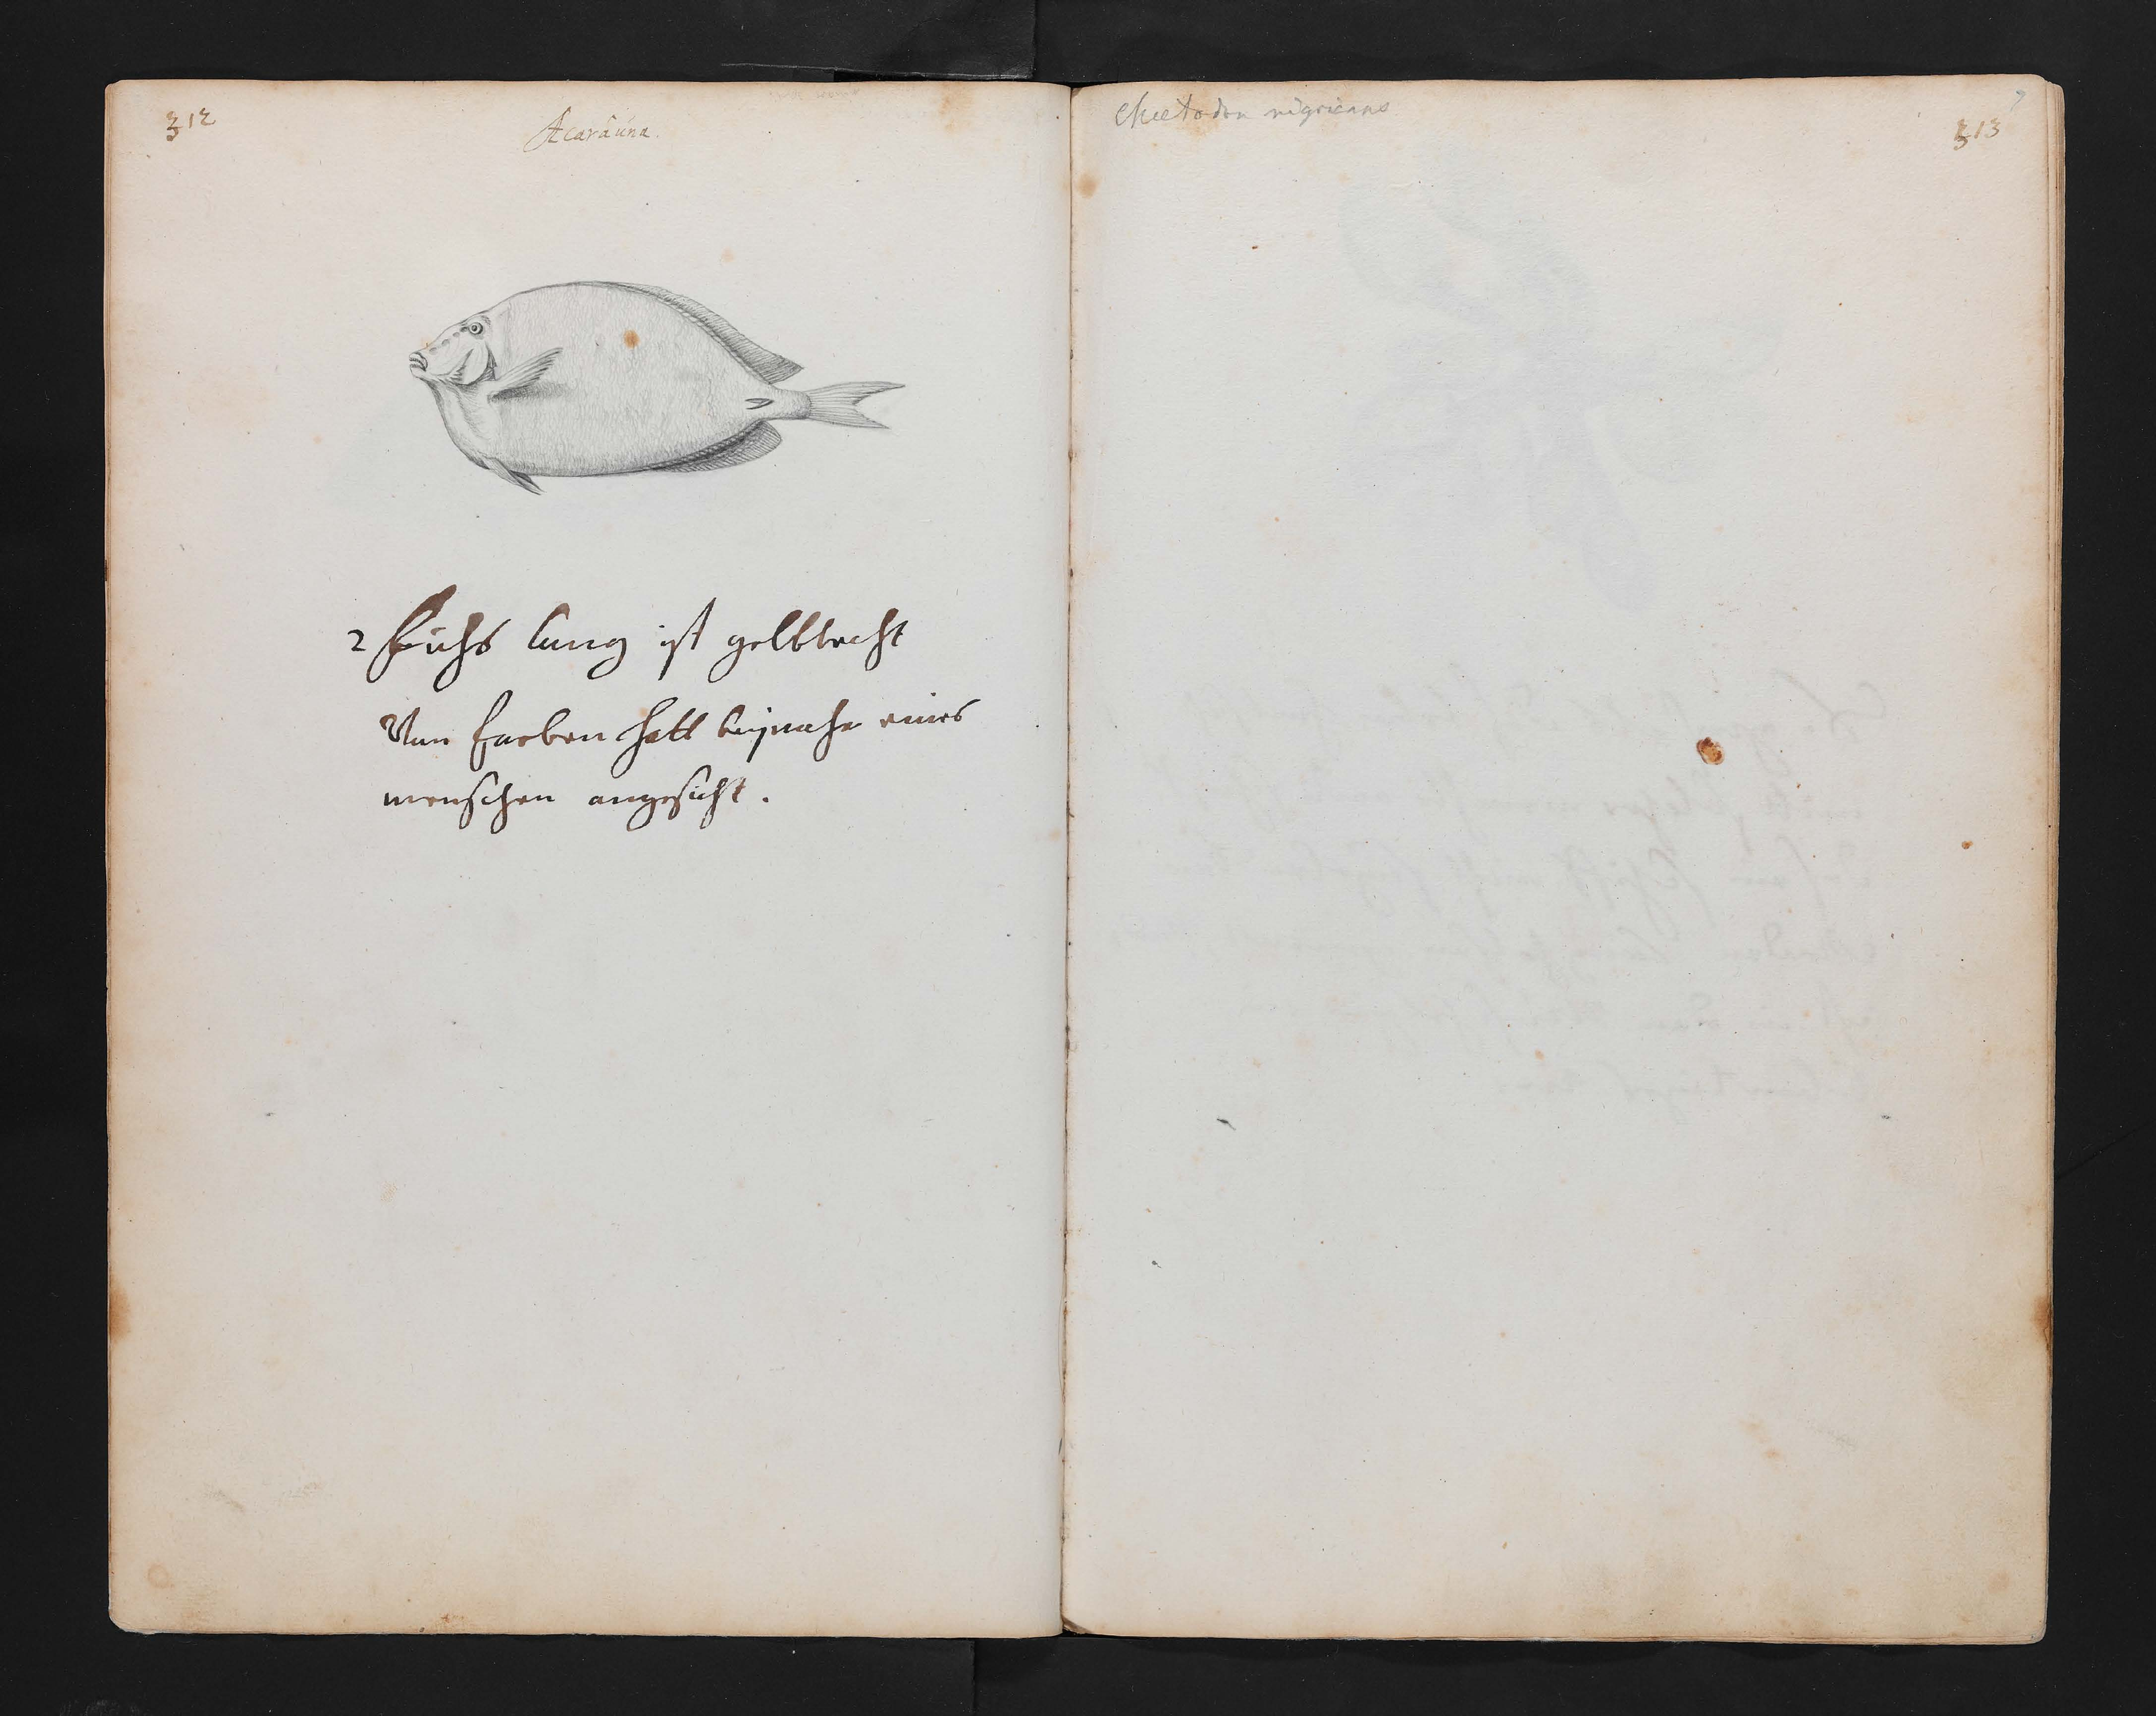 312
Acarauna.
2 fuchs lang ist gelblecht
Von farben hatt beijnahe eines
menschen angesicht.
Chaetodon nigricans
313